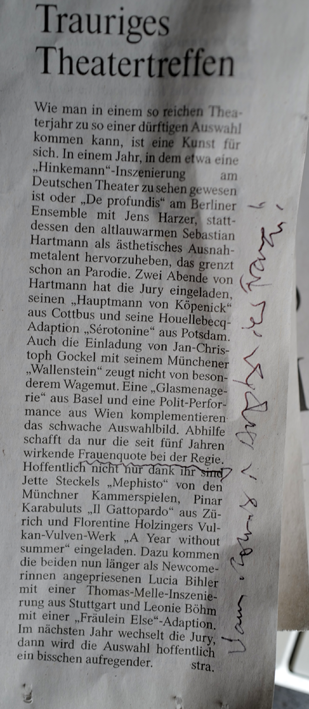 Trauriges
Theatertreffen
Wie man in einem so reichen Thea-
terjahr zu so einer dürftigen Auswahl
kommen kann, ist eine Kunst für
sich. In einem Jahr, in dem etwa eine
„Hinkemann“-Inszenierung am
Deutschen Theater zu sehen gewesen
ist oder „De profundis“ am Berliner
Ensemble mit Jens Harzer, statt-
dessen den altlauwarmen Sebastian
Hartmann als ästhetisches Ausnah-
metalent hervorzuheben, das grenzt
schon an Parodie. Zwei Abende von
Hartmann hat die Jury eingeladen,
seinen „Hauptmann von Köpenick“
aus Cottbus und seine Houellebecq-
Adaption „Sérotonine“ aus Potsdam.
Auch die Einladung von Jan-Chris-
toph Gockel mit seinem Münchener
„Wallenstein“ zeugt nicht von beson-
derem Wagemut. Eine „Glasmenage-
rie“ aus Basel und eine Polit-Perfor-
mance aus Wien komplementieren
das schwache Auswahlbild. Abhilfe
schafft da nur die seit fünf Jahren
wirkende Frauenquote bei der Regie.
Hoffentlich nicht nur dank ihr sind
Jette Steckels „Mephisto“ von den
Münchner Kammerspielen, Pinar
Karabuluts „Il Gattopardo“ aus Zü-
rich und Florentine Holzingers Vul-
kan-Vulven-Werk „A Year without
summer“ eingeladen. Dazu kommen
die beiden nun länger als Newcome-
rinnen angepriesenen Lucia Bihler
mit einer Thomas-Melle-Inszenie-
rung aus Stuttgart und Leonie Böhm
mit einer „Fräulein Else“-Adaption.
Im nächsten Jahr wechselt die Jury,
dann wird die Auswahl hoffentlich
ein bisschen aufregender. stra.